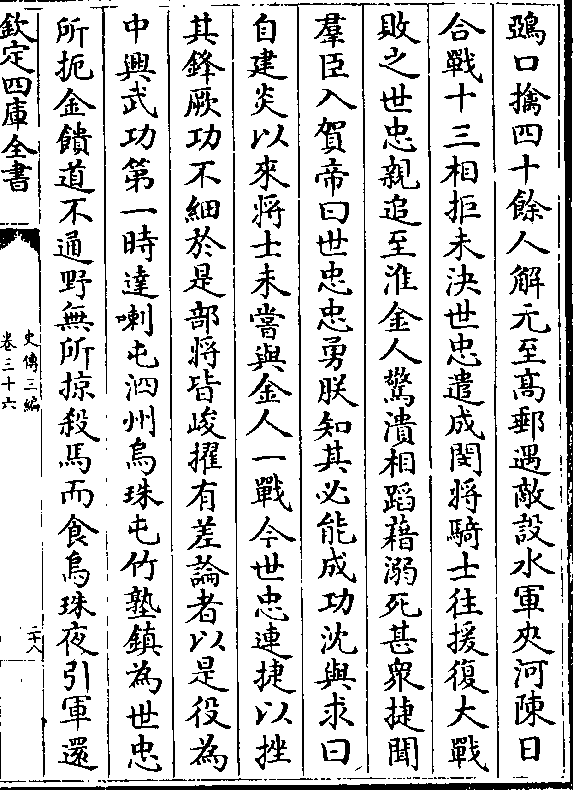 鵶口擒四十餘人解元至髙郵遇敵設水軍夾河陳日
合戰十三相拒未決世忠遣成閔將騎士往援復大戰
敗之世忠親追至淮金人驚潰相蹈藉溺死甚衆捷聞
羣臣入賀帝曰世忠忠勇朕知其必能成功沈與求曰
自建炎以來將士未嘗與金人一戰今世忠連捷以挫
其鋒厥功不細於是部將皆峻擢有差論者以是役為
中興武功第一時達喇屯泗州烏珠屯竹塾鎮為世忠
所扼金饋道不通野無所掠殺馬而食烏珠夜引軍還
欽定四庫全書
史傳三編
卷三十六
二十八